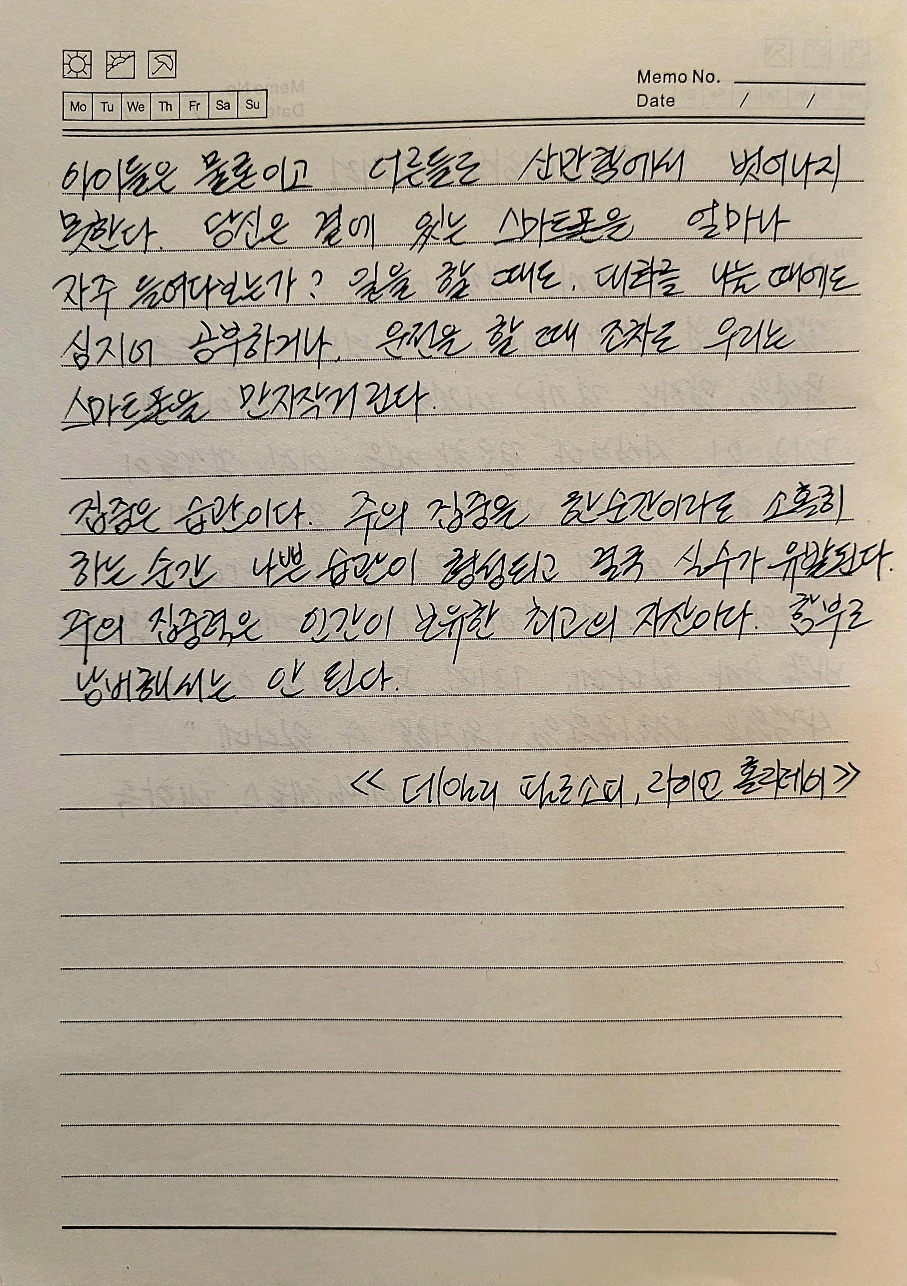 Memo No.
Mo Tu We Th Fr Sa Su
Date / /
아이들은 물론이고 어른들도 산만함에서 벗어나지
못한다. 당신은 곁에 있는 스마트폰을 얼마나
자주 들여다보는가? 일을 할 때도, 대화를 나눌 때에도
심지어 공부하거나, 운전을 할 때 조차도 우리는
스마트폰을 만지작거린다.
집중은 습관이다. 주의 집중을 한순간이라도 소홀히
하는 순간 나쁜 습관이 형성되고 결국 실수가 유발된다.
주의 집중력은 인간이 보유한 최고의 자산이다. 함부로
낭비해서는 안 된다.
<< 데일리 필로소피, 라이언 홀리데이 >>